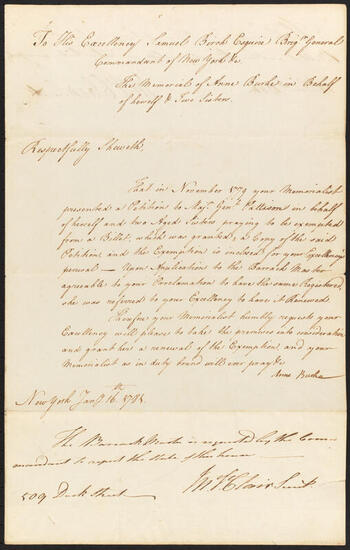 To His Excellency Samuel Birch Esquire Brig.r General
Commandant of New York &c.
The Memorial of Anne Burke in Behalf
of herself & Two Sisters.
Respectfully Sheweth.
That in November 1779 your Memorialist
presented a Petition to Maj.r Gen.l Pattison in behalf
of herself and two Aged Sisters praying to be exempted
from a Billet, which was granted, a Copy of the said
Petition and the Exemption is inclosed for your Excellency's
perusal — Upon Application to the Barrack Master
agreeable to your Proclamation to have the same Registered,
she was referred to your Excellency to have it Renewed
Therefore your Memorialist humbly requests your
Excellency will please to take the premises into consideration
and grant her a renewal of the Exemption and your
Memorialist as in duty bound will ever pray &c
Anne Burke
New York Jan.y 16.th 1781.
The Barrack Master is requested by the Com=
mandant to report the state of this house
509 Dock Street